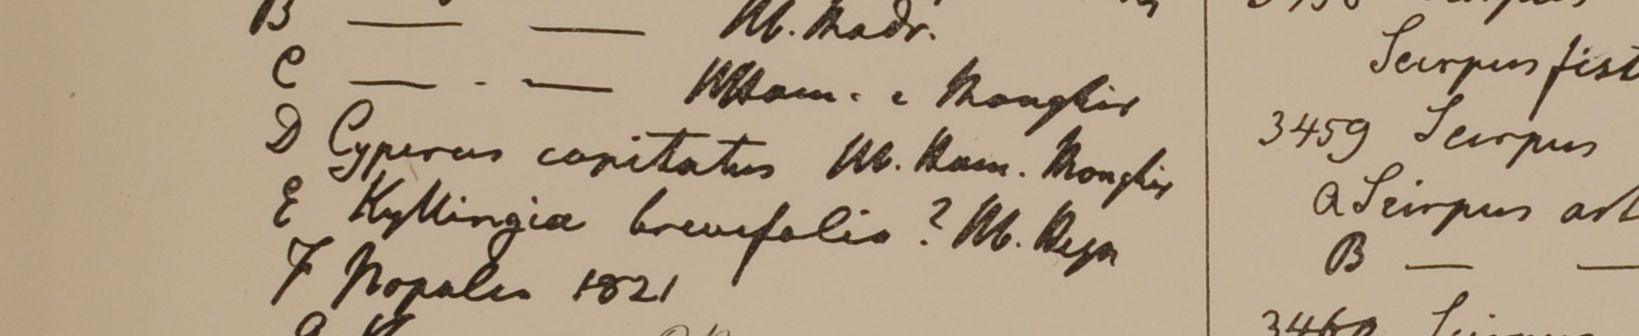 B — — Hb. Madr.
C — - — HbHam. e Monghir
D Cyperus capitatus Hb. Ham. Monghir
E Kyllingia brevifolia? Hb. Heyn
F Nopalia 1821
Scirpus fist
3459 Scirpus
a Scirpus art
B — —
3460 Scirpus